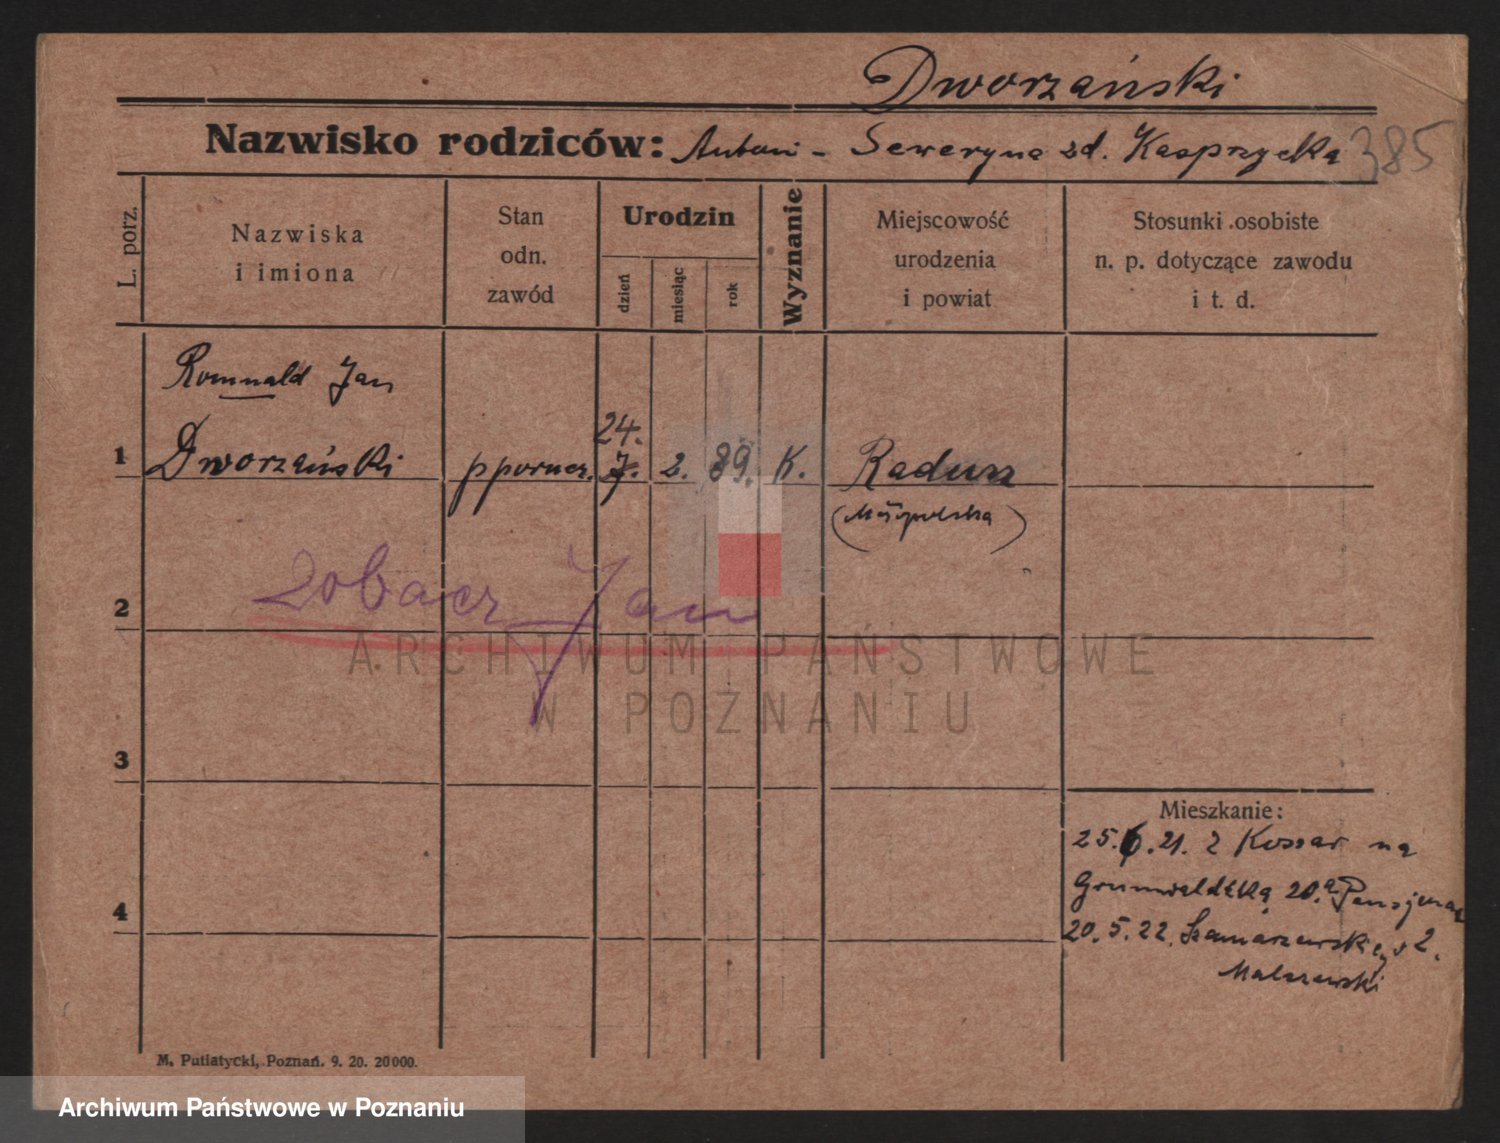 Dworzański
Nazwisko rodziców: Antoni - Seweryna zd. Kasprzycka 385
L. porz.
Nazwiska
i imiona
Stan
odn.
zawód
Urodzin
dzień
miesiąc
rok
Wyznanie
Miejscowość
urodzenia
i powiat
Stosunki osobiste
n. p. dotyczące zawodu
i t. d.
Romuald Jan
24.
1 Dworzański pporucz. 7. 2. 89. K. Radusz
(Małopolska)
Zobacz Jan
2
ARCHIWUM PAŃSTWOWE
W POZNANIU
3
Mieszkanie:
25.6.21. z Koszar na
4 Grunwaldzką 20.a Pensjonat
20.5.22. Szamarzewskiego 2.
Malszewski
M. Putiatycki, Poznań. 9. 20. 20000.
Archiwum Państwowe w Poznaniu